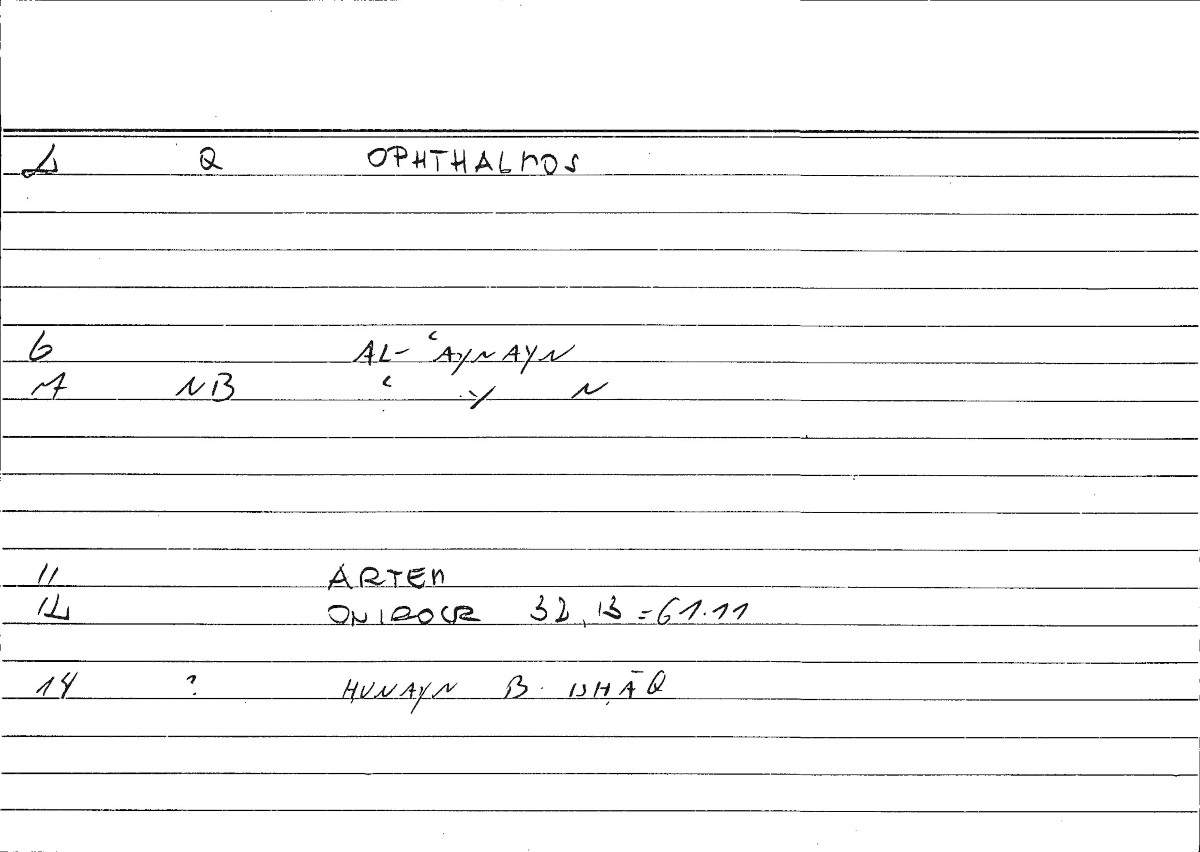 2 Q OPHTHALMOS
6 AL- ʿAYNAYN
7 NB ʿ Y N
11 ARTEM
12 ONIROCR 32,13 = 61.11
14 ? ḤUNAYN B. ISḤĀQ